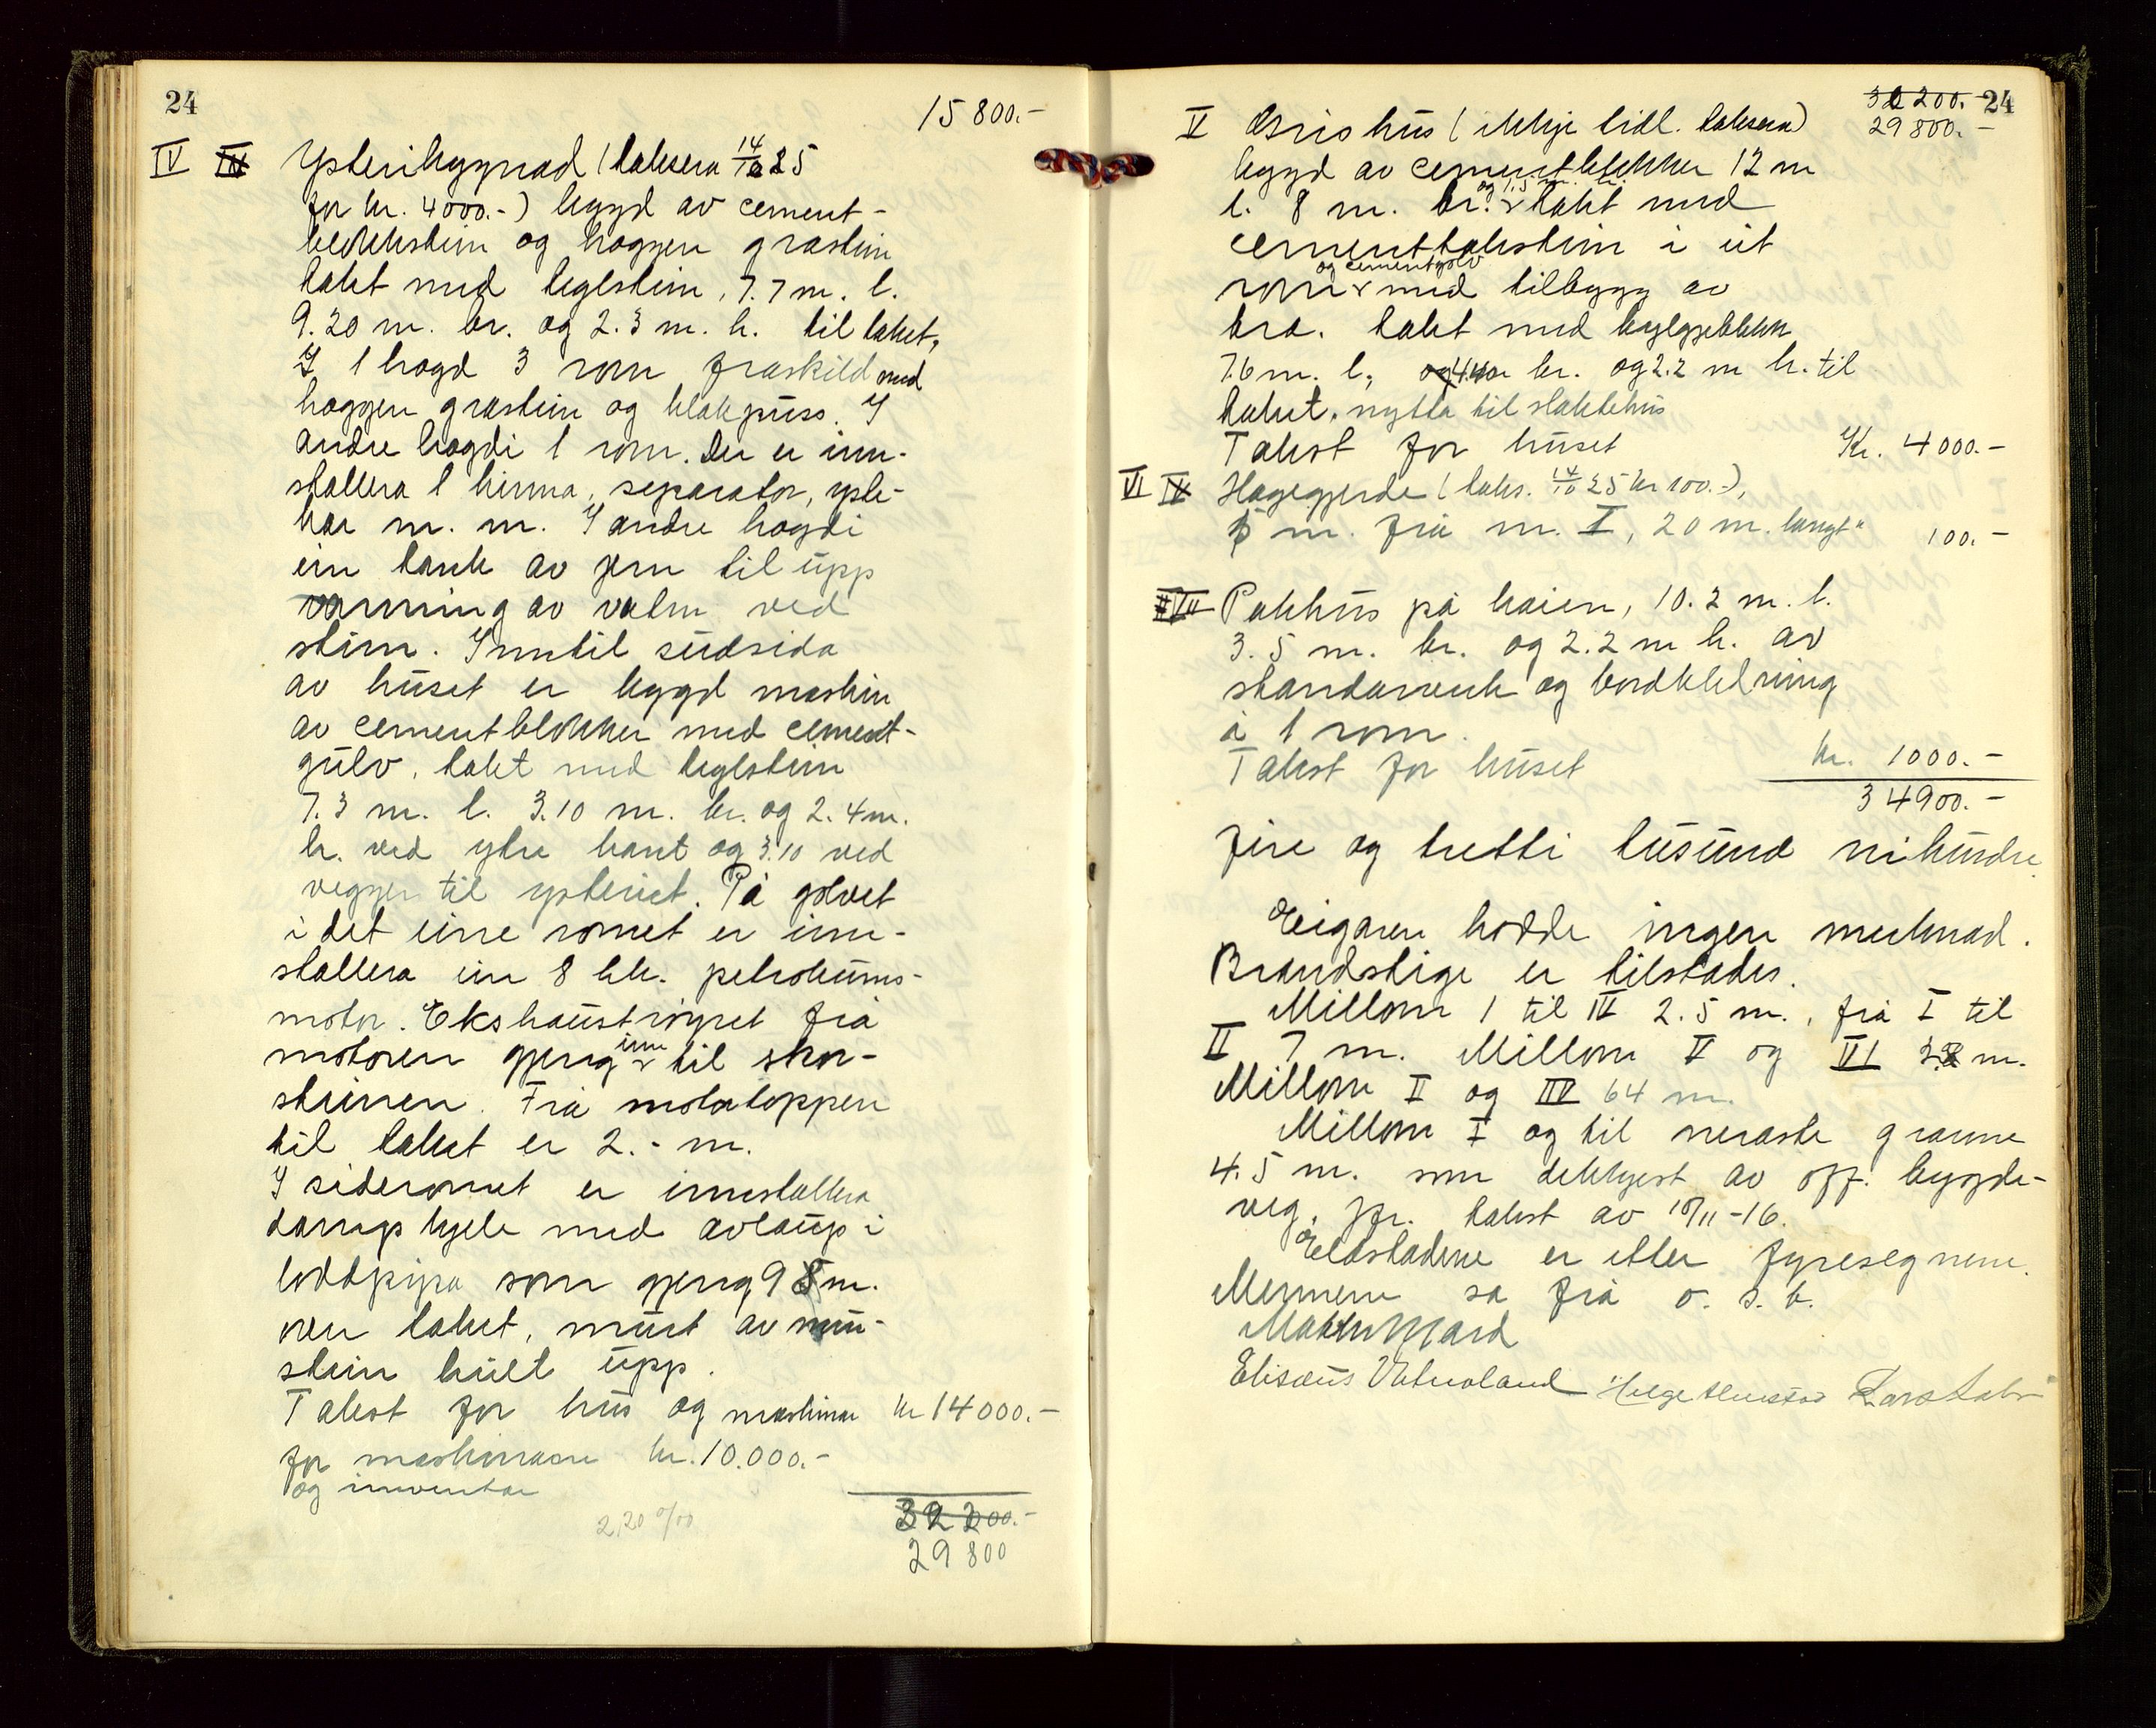 24
15 800.-
IV IV Ysteribygnad (taksera 14/10 25
for kr. 4000.-) bygd av cement-
blokkstein og hoggen gråstein
tekt med teglstein, 7.7 m. l.
9.20 m. br. og 2.3 m. h. til taket,
I 1 høgd 3 rom fraskild med
hoggen gråstein og blakpuss. I
andre høgdi 1 rom. Der er inn-
stallera 1 kinna, separator, yste-
kar m. m. I andre høgdi
ein tank av jern til upp
varming av vatn ved
stim. Inntil sudsida
av huset er bygd maskin
av cementblokker med cement-
gulv, tekt med teglstein
7.3 m. l. 3.10 m. br. og 2.4 m.
h. ved ytre kant og 3.10 ved
veggen til ysteriet. På golvet
i det eine romet er inn-
stallera ein 8 hk. petroleums-
motor. Ekshaustrøyret frå
motoren gjeng inn til skor-
steinen. Frå motortoppen
til taket er 2.- m.
I siderommet er innstallera
dampkjele med avlaup i
loddpipa som gjeng 9 m.
over taket, murt av mur-
stein heilt upp.
Takst for hus og maskinar kr 14000.-
for maskinane kr. 10.000.-
og inventar
2,20 ‰
32 200.-
29 800
24
32 200.-
29 800.-
V Grishus (ikkje tidl. taksera)
bygd av cementblokker 12 m
l. 8 m. br. og 1,5 m. h. tekt med
cementtakstein i eit
rom og cementgolv med tilbygg av
bra. tekt med bylgjeblekk
7.6 m. l, br. og 2.2 m h. til
taket, nytta til slaktehus
Takst for huset Kr. 4000.-
VI IV Hagegjerde (taks. 14/10 25 kr 100.-),
5 m. frå nr. I, 20 m. langt" 100.-
VII Pakhus på kaien, 10.2 m. l.
3.5 m. br. og 2.2 m h. av
standarverk og bordkledning
i 1 rom.
Takst for huset kr. 1000.-
34900.-
fire og tretti tusund nihundre.
Eigaren hadde ingen merknad.
Brandstige er tilstades.
Millom I til IV 2.5 m., frå I til
II 7 m. Millom V og VI m.
Millom II og III 64 m.
Millom I og til næraste granne
4.5 m. som dekkjest av off. bygde-
veg, jfr. takst av 18/11-16.
Eldstadene er etter fyresegnene.
Mennene sa frå o. s. b.
Elisæus Vatnaland Helge Lars